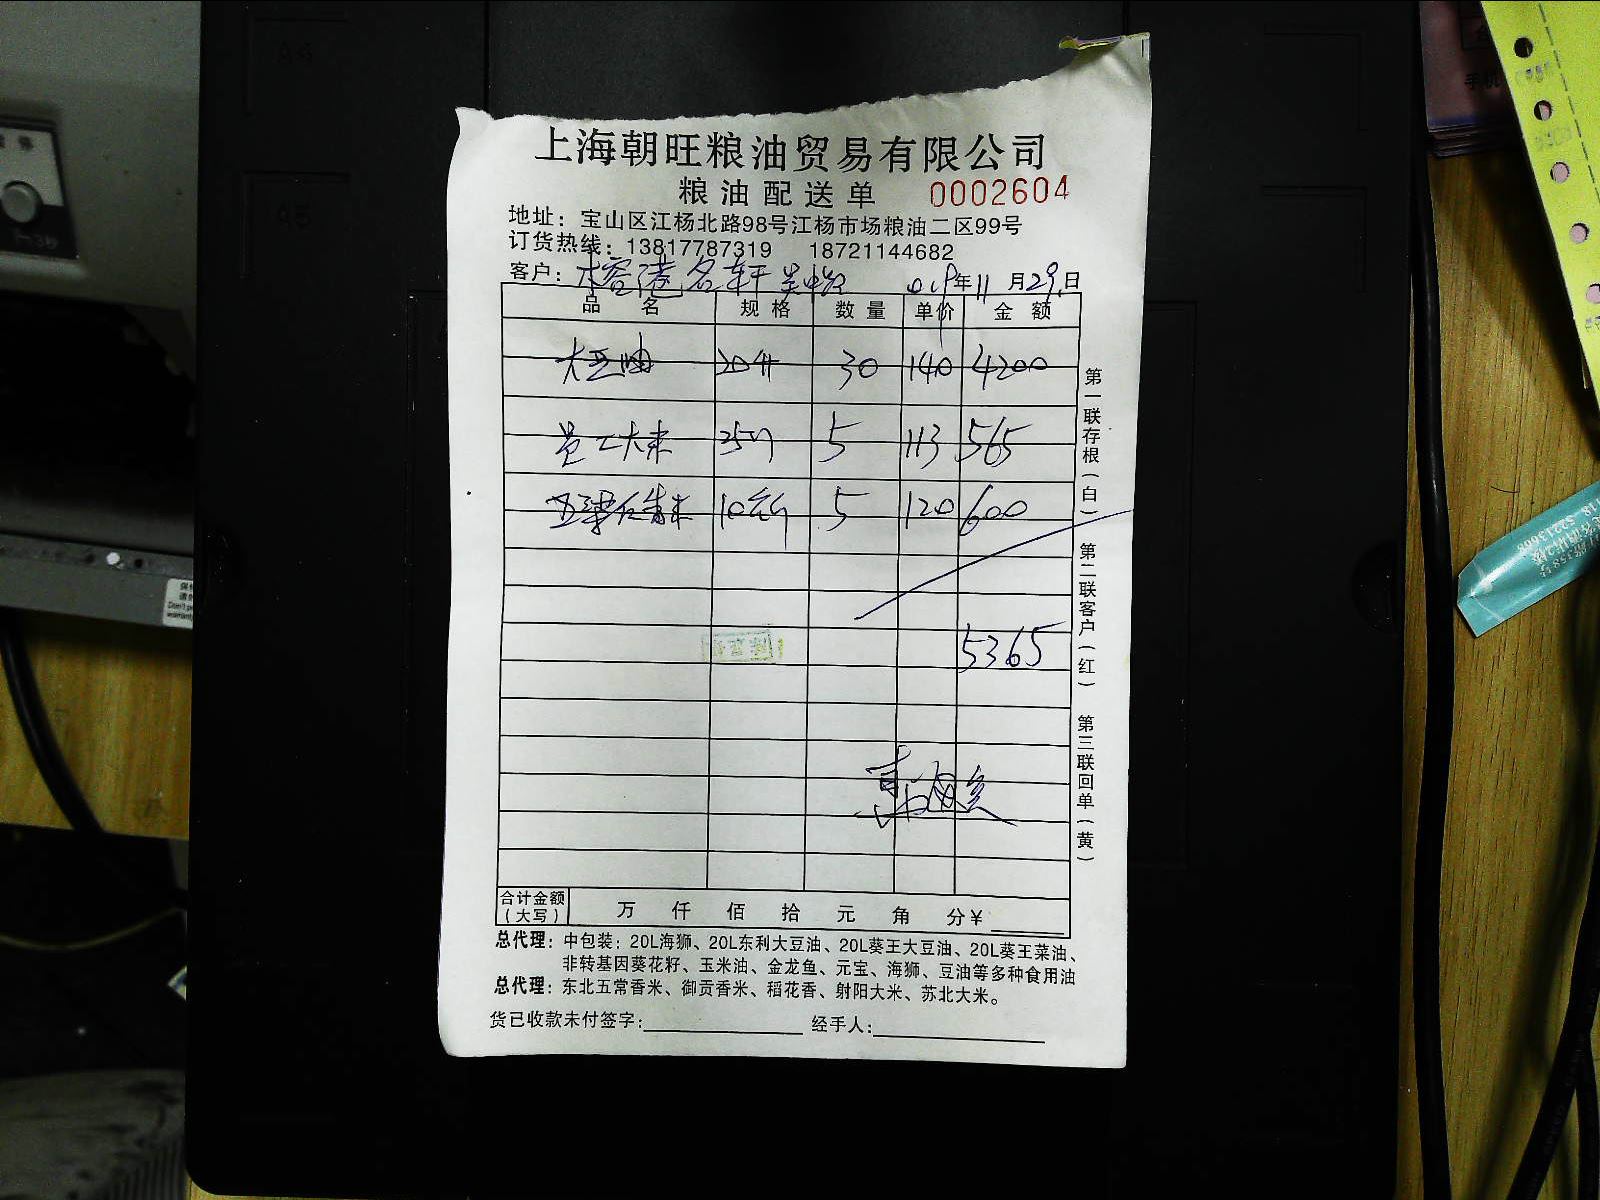 上海朝旺粮油贸易有限公司
粮油配送单 0002604
地址：宝山区江杨北路98号江杨市场粮油二区99号
订货热线：13817787319 18721144682
客户： 名轩 年11月29日
品名 规格 数量 单价 金额
大豆油 20升 30 140 4200
员工大米 25 5 113 565
10 5 120 600
5365
第一联存根（白） 第二联客户（红） 第三联回单（黄）
合计金额（大写） 万 仟 佰 拾 元 角 分¥
总代理：中包装：20L海狮、20L东利大豆油、20L葵王大豆油、20L葵王菜油、
非转基因葵花籽、玉米油、金龙鱼、元宝、海狮、豆油等多种食用油
总代理：东北五常香米、御贡香米、稻花香、射阳大米、苏北大米。
货已收款未付签字： 经手人：
A5
手机